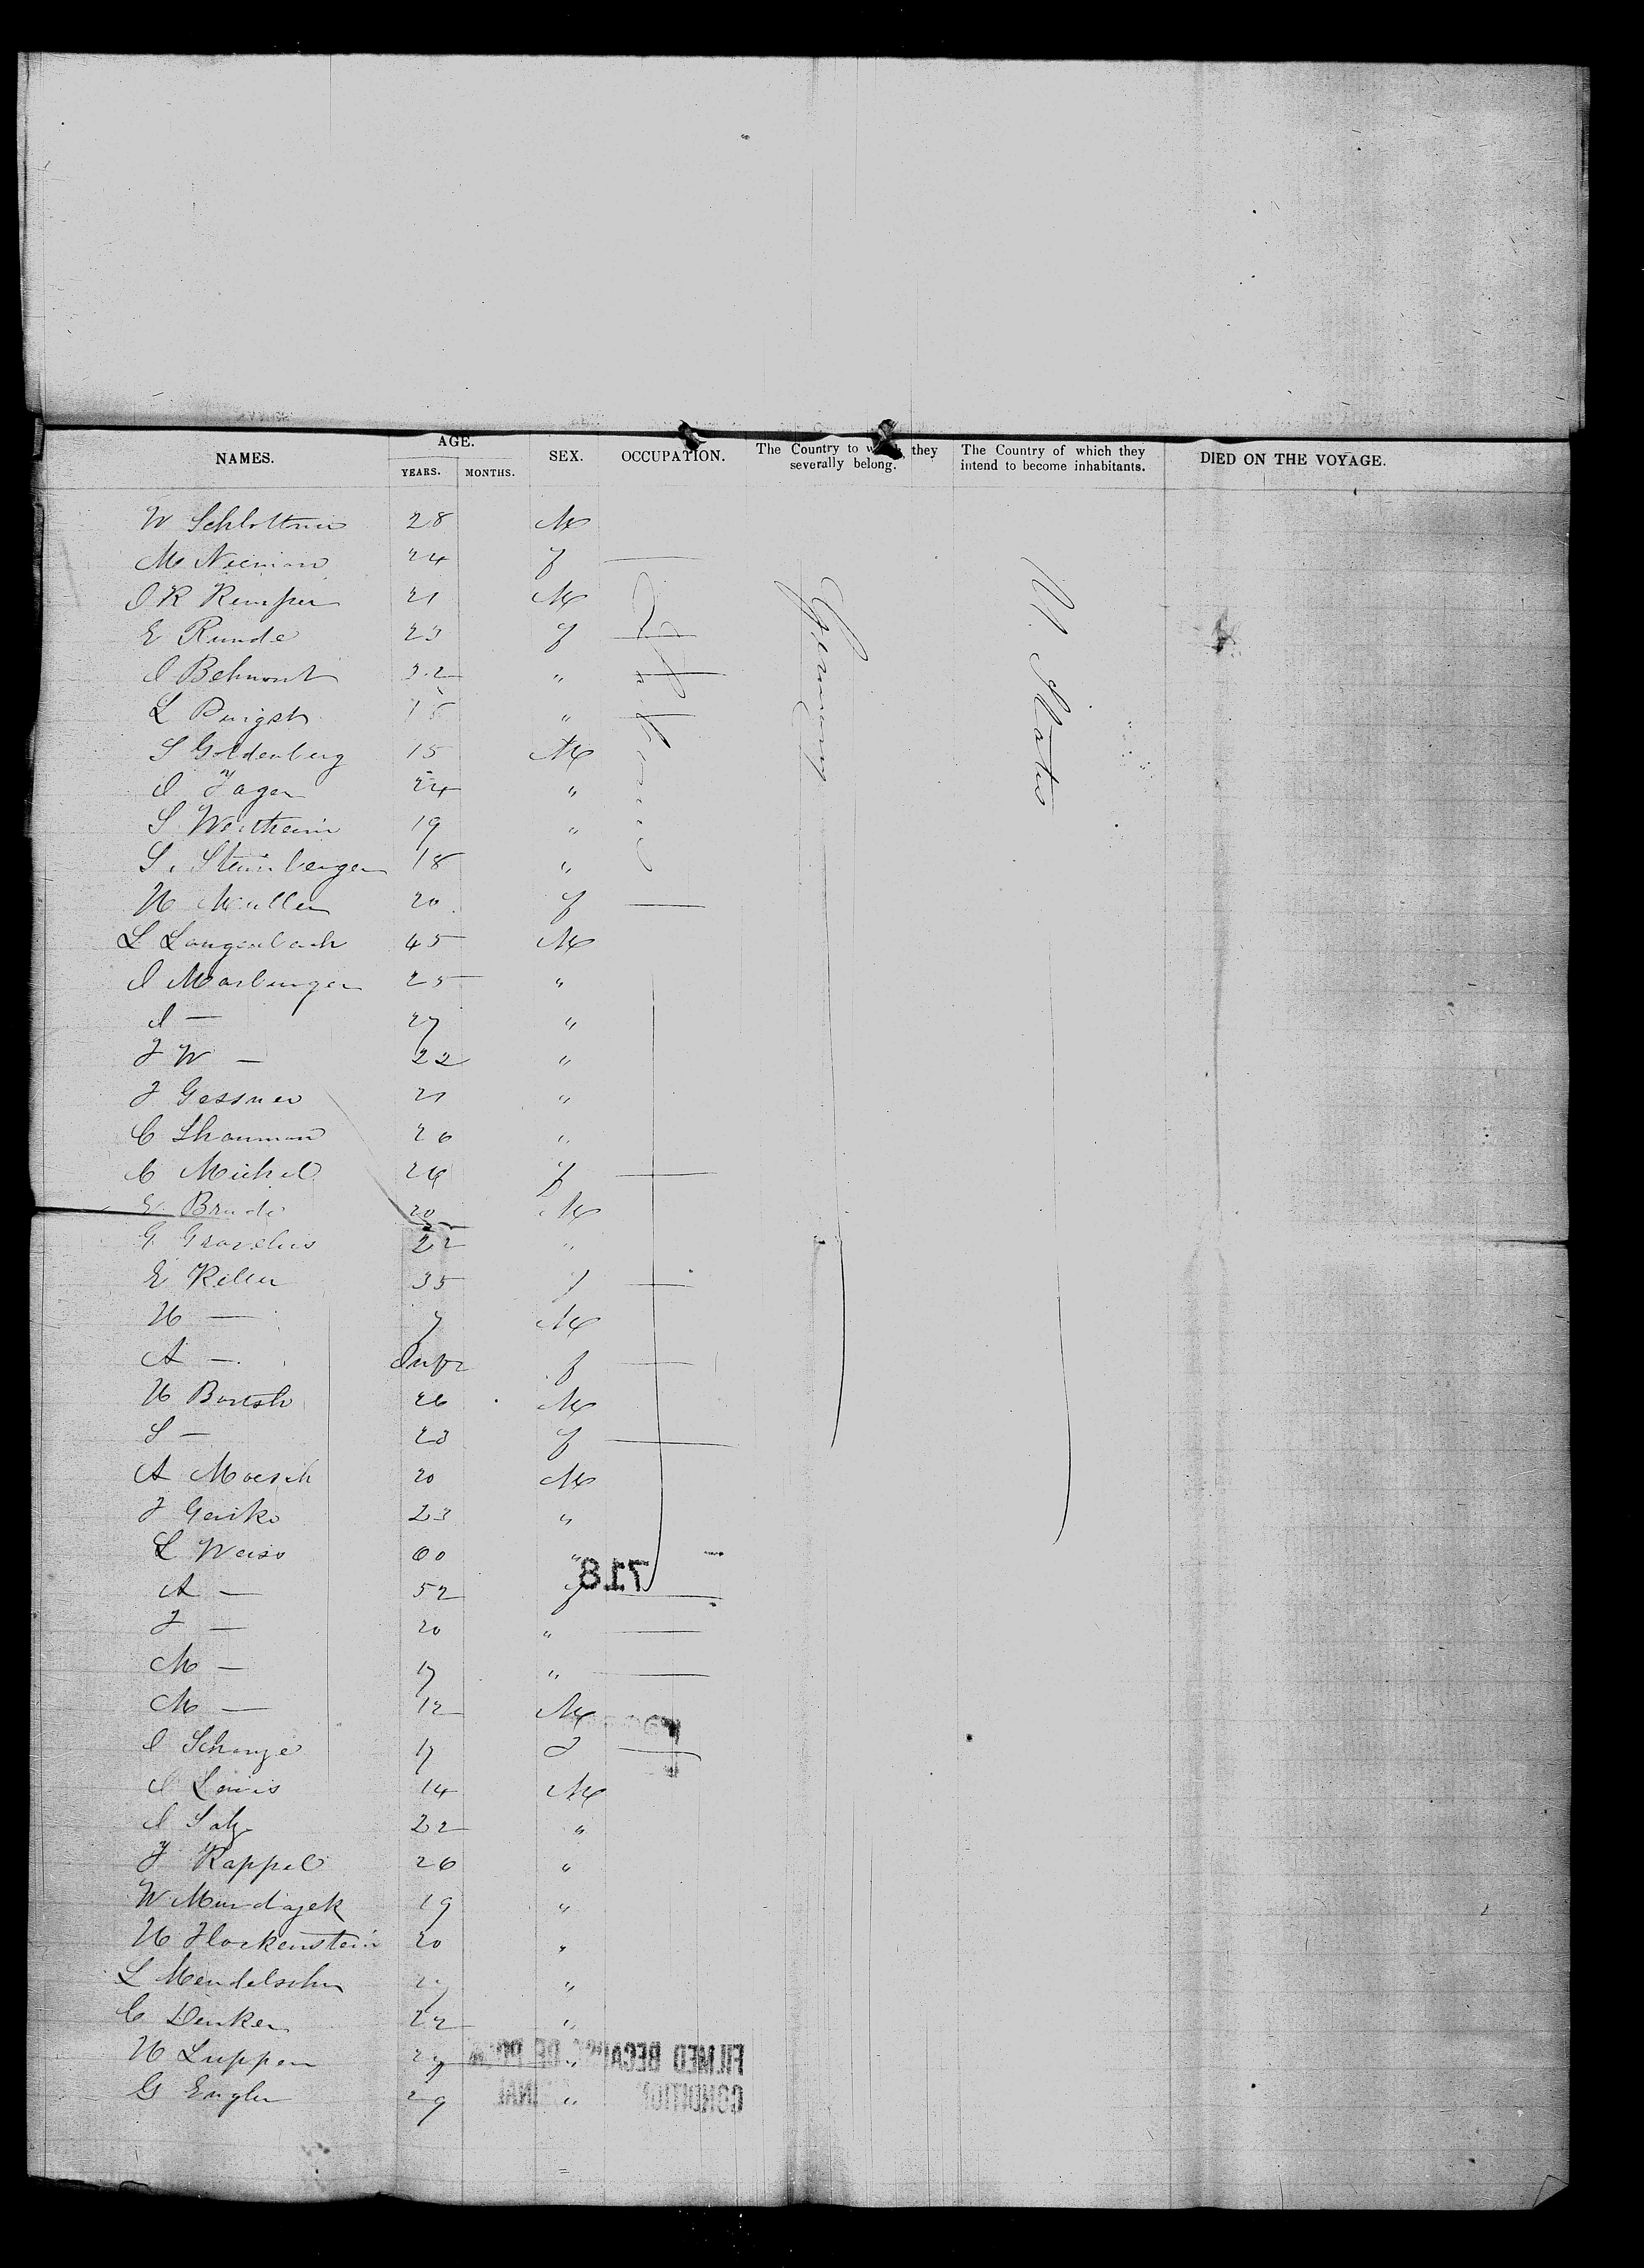 NAMES. AGE. YEARS. MONTHS. SEX. OCCUPATION. The Country to which they severally belong. The Country of which they intend to become inhabitants. DIED ON THE VOYAGE.
W 28 M
M Nieman 24 f —
I R Kemper 21 M
E Runde 23 f —
I Behnort 32 " —
L 15 " —
S Goldenberg 15 M
I Jager 24 "
S Wertheim 19 "
S. Steinberger 18 "
H Muller 20 f —
L Langenbach 45 M
I Marburger 25 "
I — 27 "
J W — 22 "
J Gessner 21 "
C 26 "
C Michel 24 f —
E Brude 20 M
G 22 "
E Keller 35 f —
H — 7 M
A — Inft f —
H Bartsh 26 M
S — 23 f —
A Moesch 20 M
J Gerike 23 "
L Weiss 60 "
A — 52 f —
J — 20 " —
M — 17 " —
M — 12 M
I Schanze 17 f —
I Lewis 14 M
I Salz 22 "
J Kappel 26 "
W 19 "
H Flockenstein 20 "
L Mendelsohn 27 "
C Denker 22 "
H Luppen 27 "
G Engler 29 "
Germany
U. States
718
FILMED BECAUSE OF POOR
CONDITION